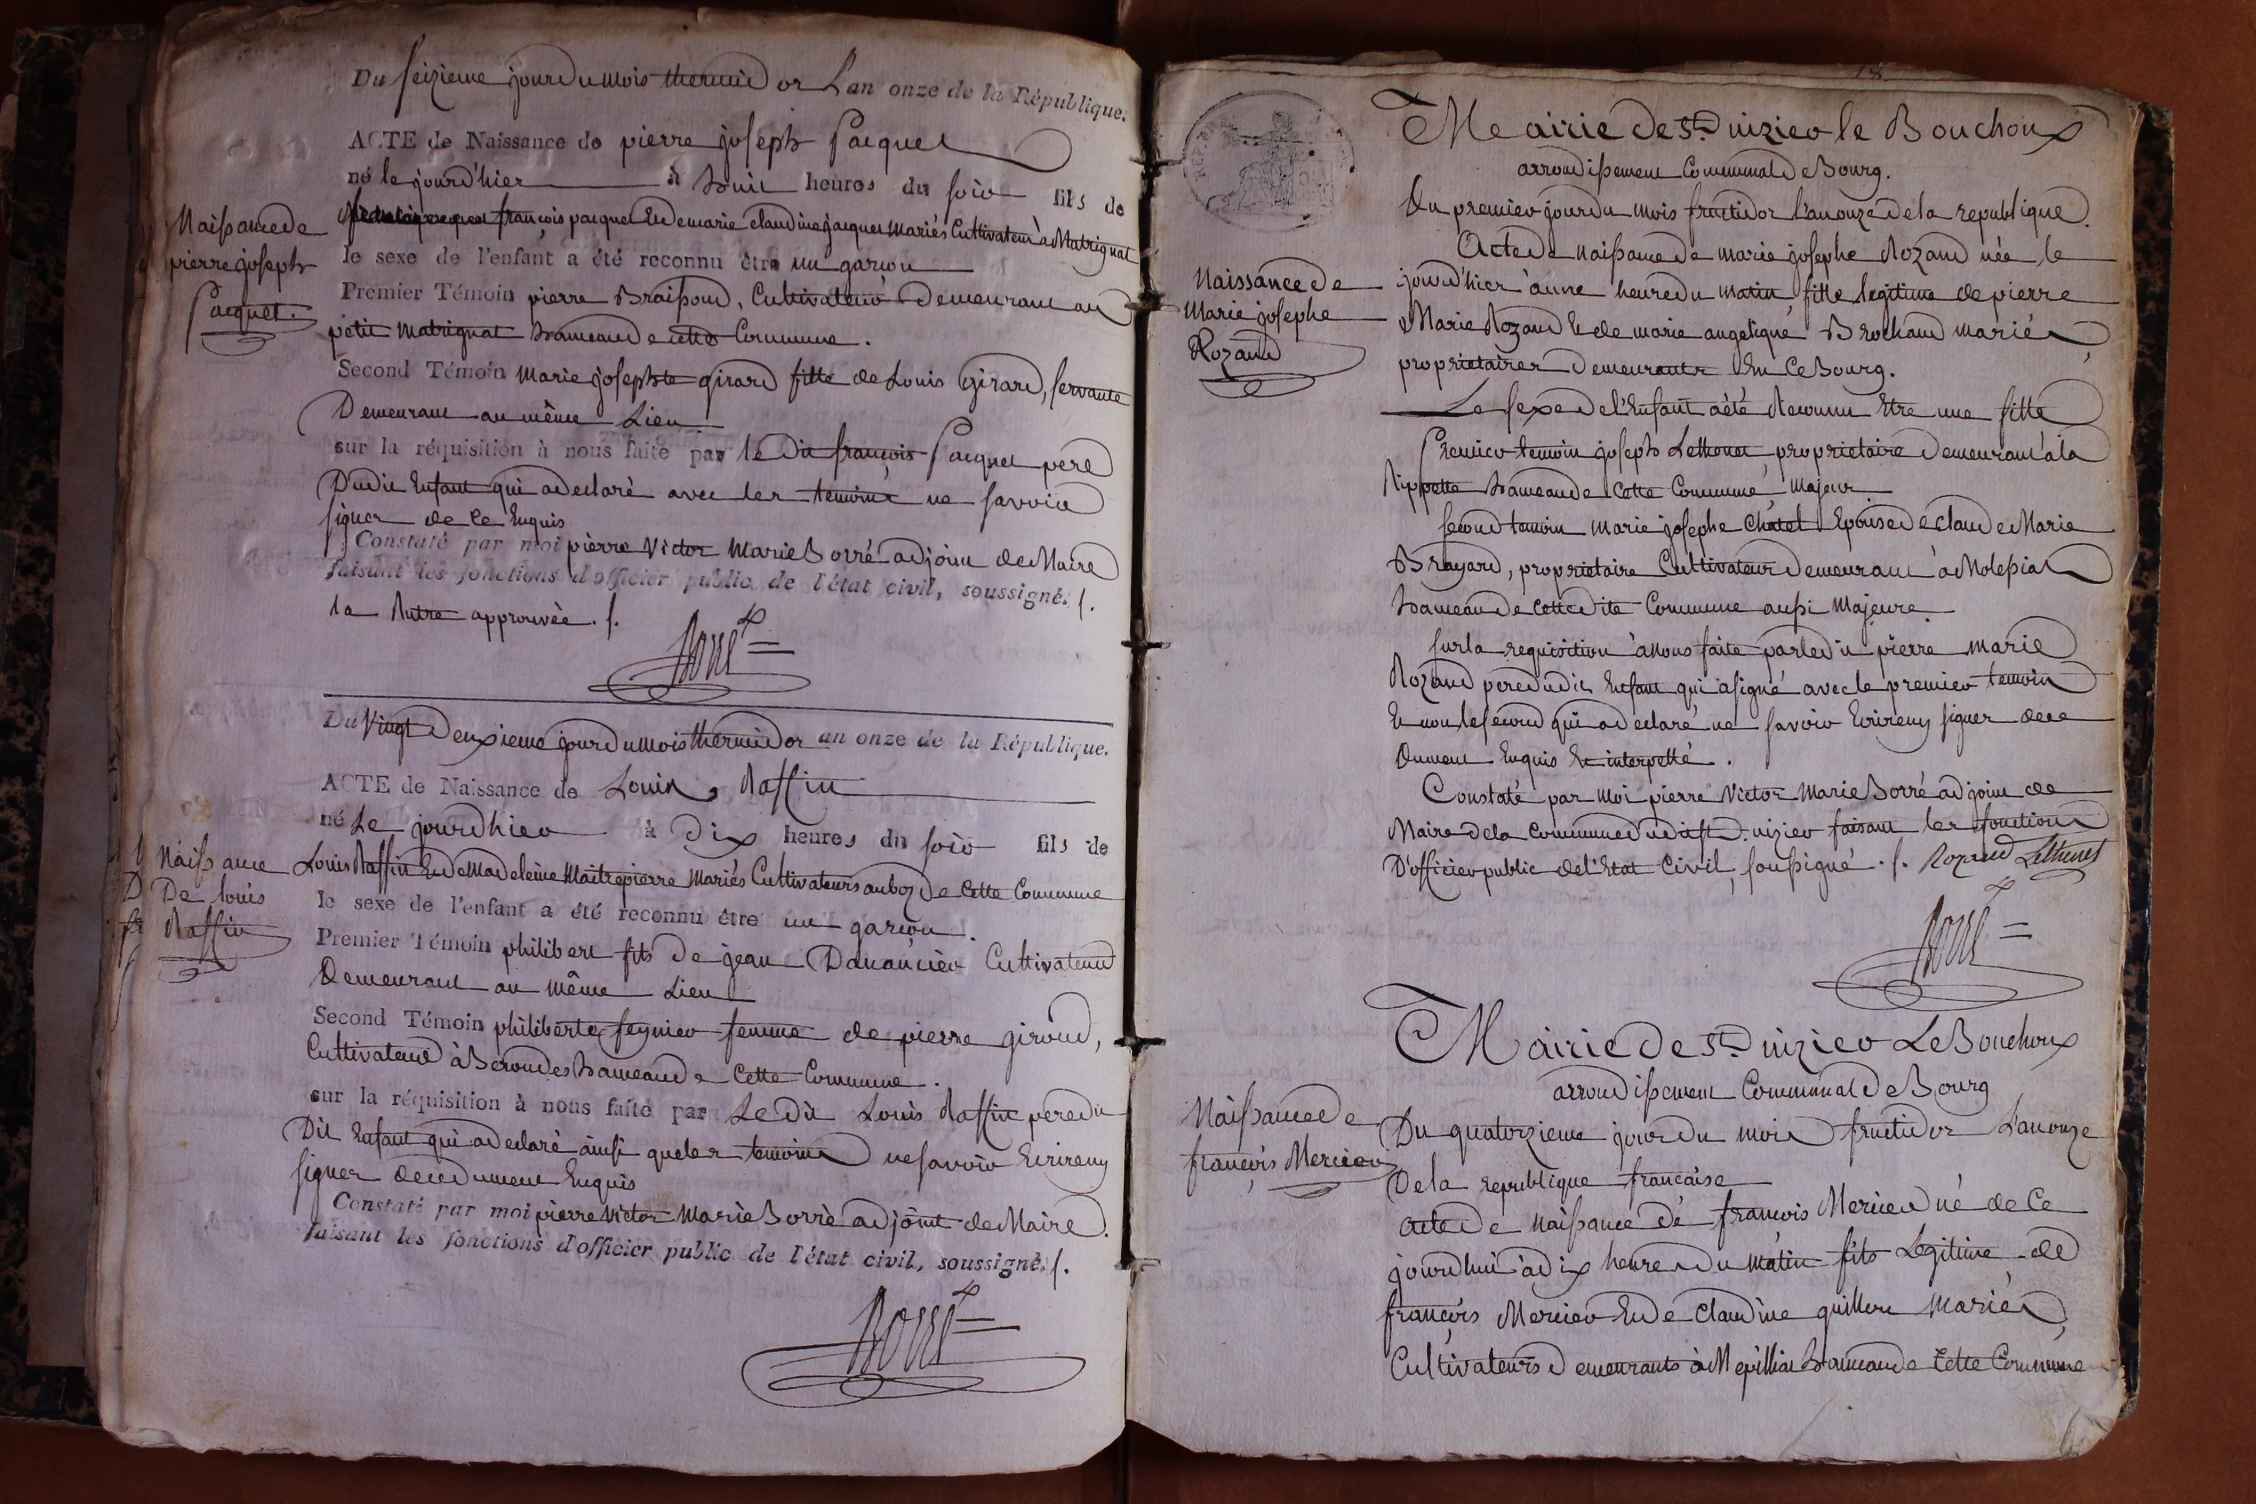 Du seizieme jour du mois thermidor Lan onze de la République.
ACTE de Naissance de pierre joseph Pacquet
né le jourd'hier à huit heures du soir fils de
françois pacquet Et de marie claudine jacquet mariés Cultivateur à Matrignat
Naissance de
pierre joseph
Pacquet.
le sexe de l'enfant a été reconnu être un garçon
Premier Témoin pierre Braissoud, Cultivateur Demeurant au
petit Matrignat hameau de cette Commune.
Second Témoin marie josephte girard fille de Louis Girard, servante
Demeurant au même Lieu
sur la réquisition à nous faite par le Dit françois Pacquet pere
Dudit Enfant qui a declaré avec les temoins ne savoir
signer de ce Enquis
Constaté par moi pierre Victor Marie Borré adjoint de Maire
faisant les fonctions d'officier public de l'état civil, soussigné. /.
la Rutre approuvée. /.
Borré
Du Vingt Deuxieme jour du mois thermidor an onze de la République.
ACTE de Naissance de Louis, Raffin
né Le jourdhier à Dix heures du soir fils de
Louis Raffin Et de Madeleine Maitrepierre Mariés Cultivateurs au boz de Cette Commune
Naissance
De louis
Raffin
le sexe de l'enfant a été reconnu être un garçon.
Premier Témoin philibert fils de jean Danancier Cultivateur
Demeurant au même Lieu
Second Témoin philiberte feynier femme de pierre giroud,
Cultivateur à Beroudes hameau de Cette Commune.
sur la réquisition à nous faite par Le Dit Louis Raffin pere du
Dit Enfant qui a declaré ainsi que les temoins ne savoir Ecrire ny
signer de ce dument Enquis
Constaté par moi pierre Victor Marie Borré adjoint de Maire.
faisant les fonctions d'officier public de l'état civil, soussigné. /.
Borré
18
Mairie de St. nizier le Bouchoux
arrondissement Communal de Bourg.
Du premier jour du mois fructidor l'an onze de la republique.
Acte de naissance de marie josephe Rozand née, le
jourd'hier à une heure du matin, fille legitime de pierre
Marie Rozand Et de marie angelique Brochand mariés
proprietaires Demeurants En Ce Bourg.
Naissance de
Marie josephe
Rozand
Le sexe de l'Enfant a été Reconnu Etre une fille
Premier temoin joseph Lethenet, proprietaire Demeurant à la
Rippette hameau de Cette Commune, Majeur
second temoin marie josephe Châtel Epouse de claude Marie
Brayard, proprietaire Cultivateur Demeurant à Molessiat
hameau de Cette dite Commune aussi Majeure.
sur la requisition à nous faite par le dit pierre marie
Rozand pere dudit Enfant qui a signé avec le premier temoin
Et non le second qui a declaré ne savoir Ecrire ny signer de ce
Dument Enquis Et interpellé.
Constaté par moi pierre Victor Marie Borré adjoint de
Maire de la Commune dudit St. nizier faisant les fonctions
D'officier public de l'Etat Civil, soussigné. /. Rozand Lethenet
Borré
Mairie de St. nizier Le Bouchoux
arrondissement Communal de Bourg
Naissance de
françois Mercier
Du quatorzieme jour du mois fructidor L'an onze
De la republique francaise
Acte de Naissance de françois Mercier né de Ce
jourdhui à dix heures du matin fils Legitime de
françois Mercier Et de Claudine guillere Mariés,
Cultivateurs Demeurants à Mepilliat hameau de Cette Commune